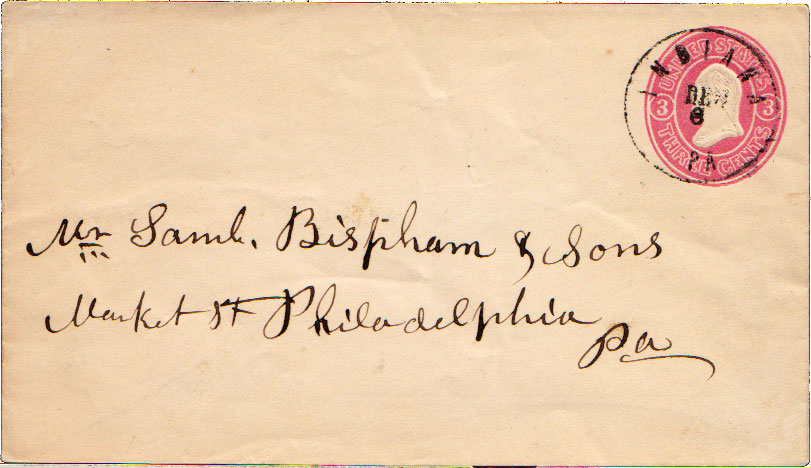 UNITED STATES
3 3
THREE CENTS
INDIANA
6
PA
Mr Saml. Bispham & Sons
Market St Philadelphia
Pa